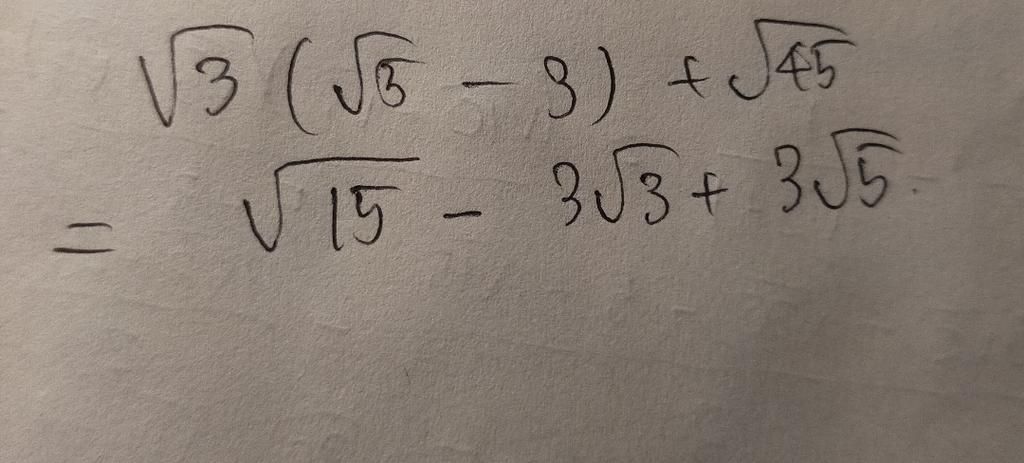 √3 (√5 - 3) + √45
= √15 - 3√3 + 3√5.